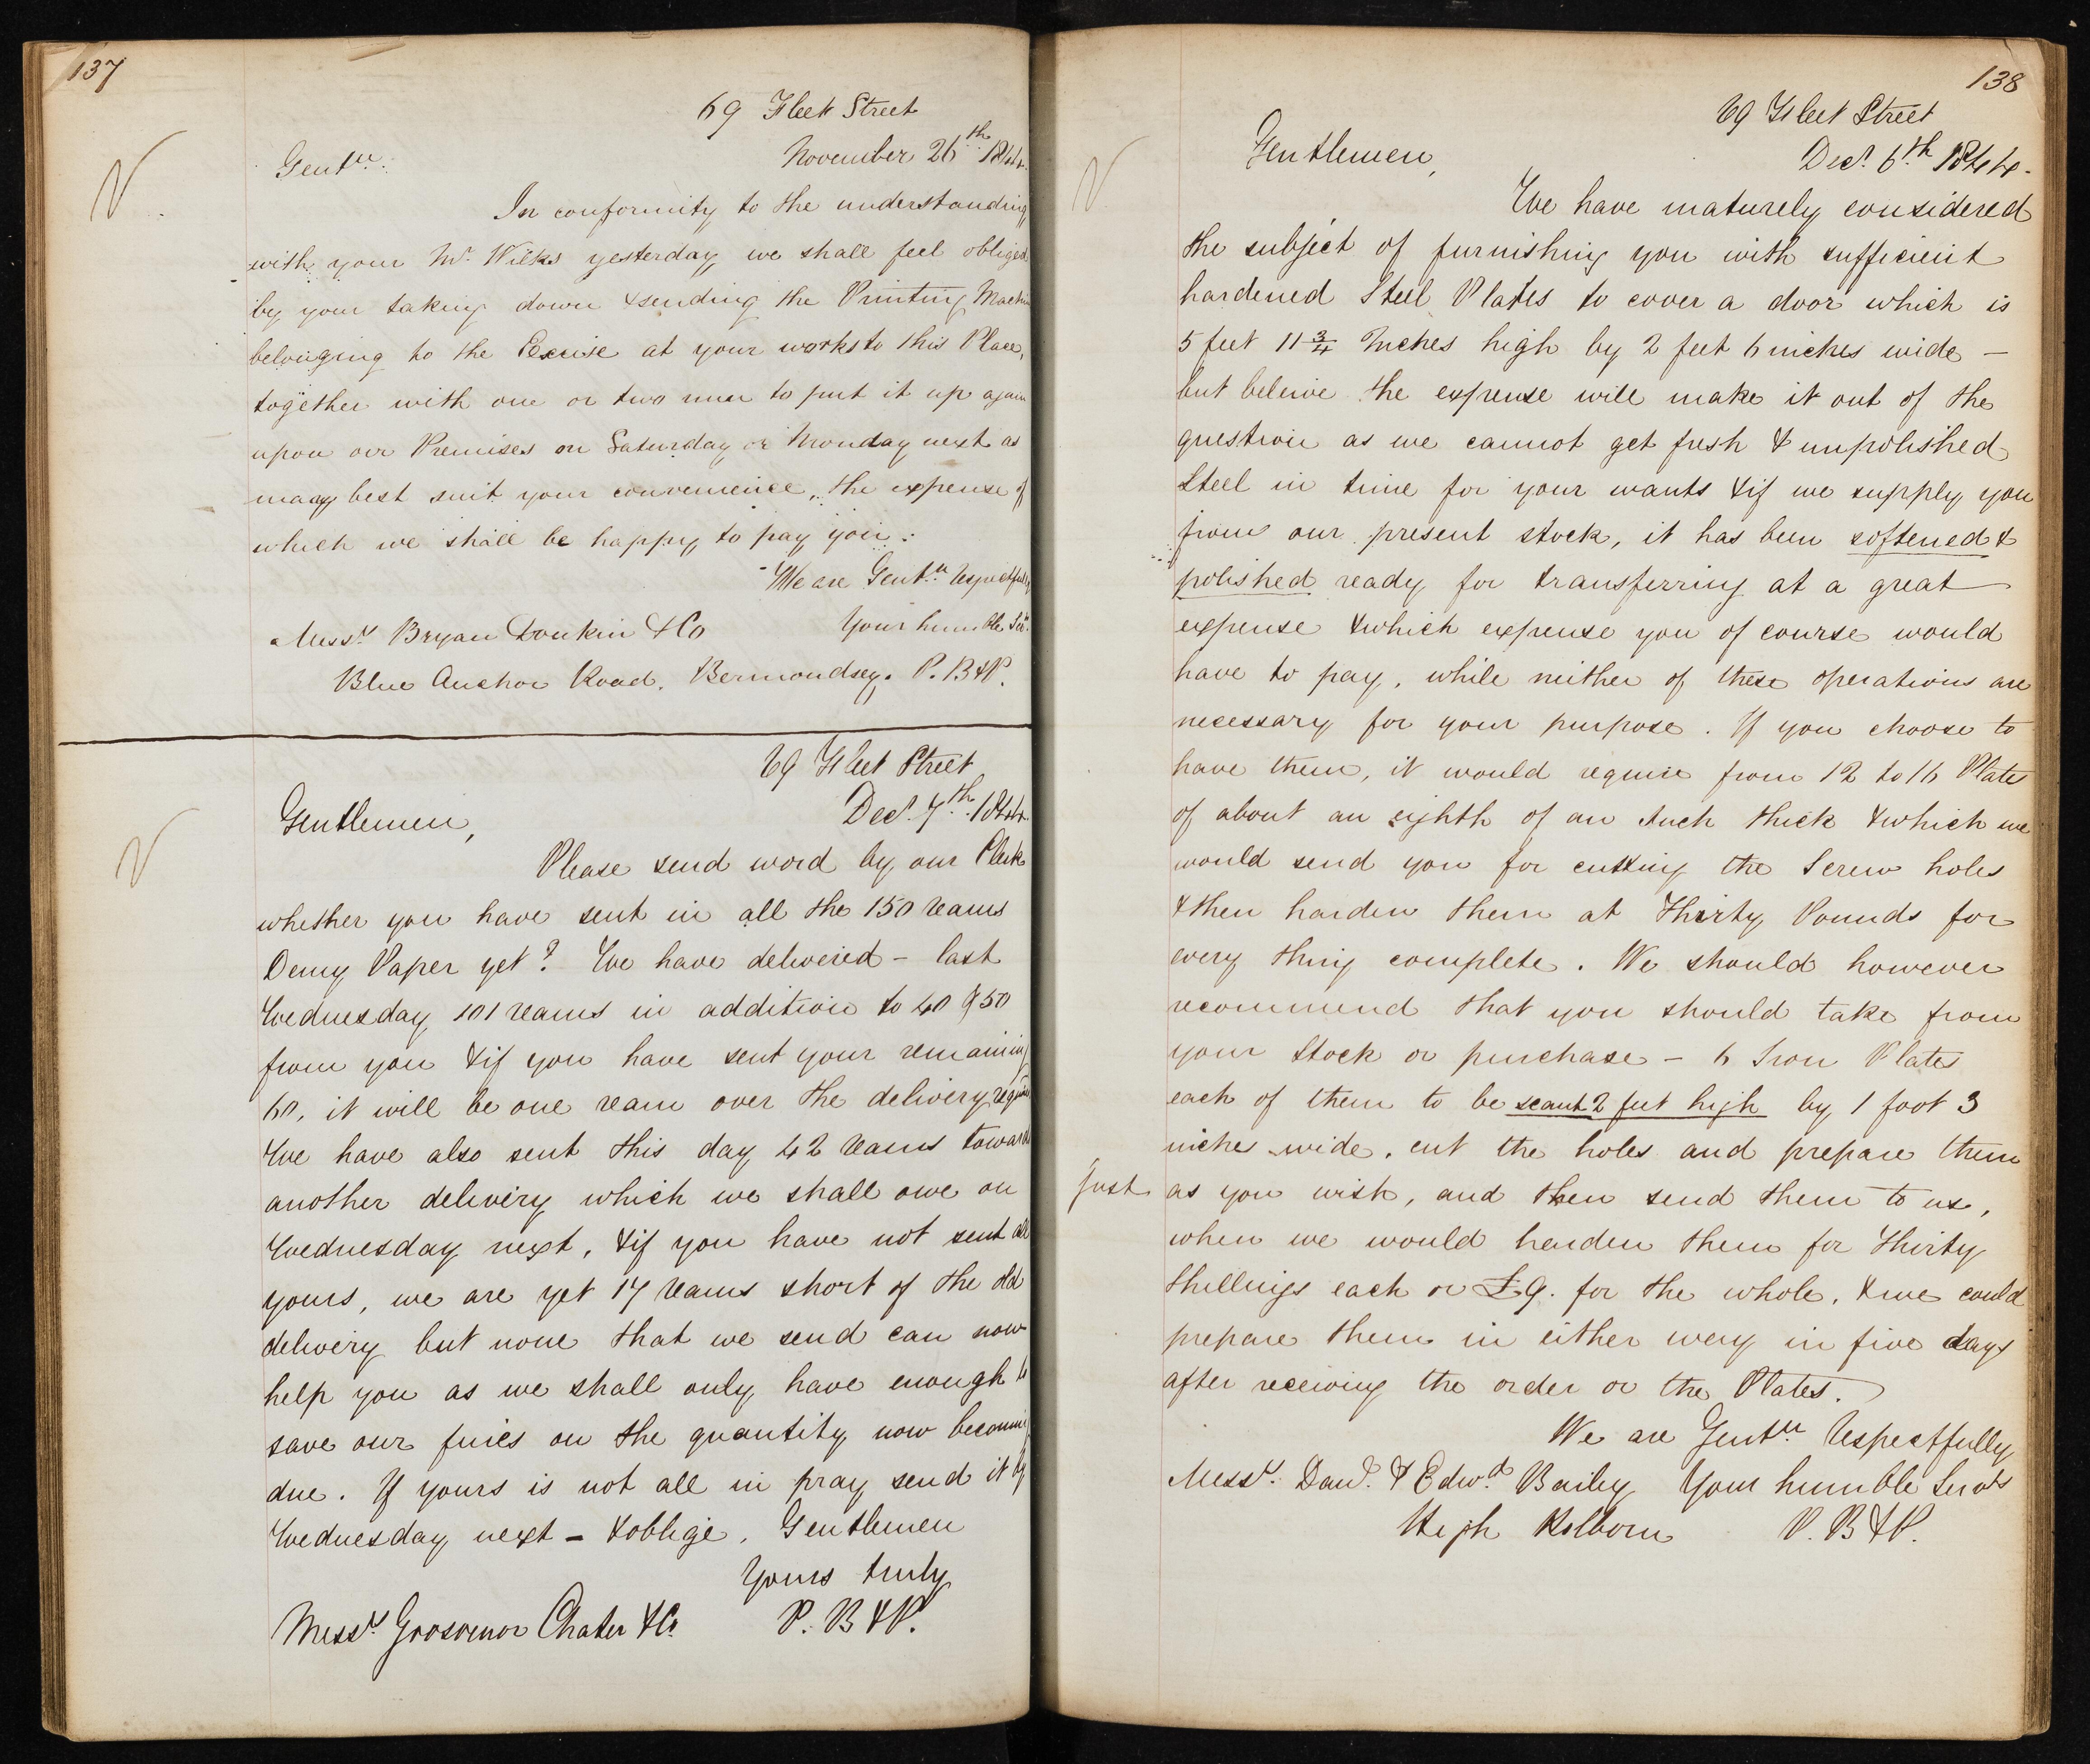 137
69 Fleet Street
November 26th 1844.
Gentn.
In conformity to the understanding
with your Mr. Wilks yesterday we shall feel obliged
by your taking down & sending the Printing Machin
belonging to the Excise at your works to this Place,
together with one or two men to put it up again
upon our Premises on Saturday or Monday next as
may best suit your convenience, the expense of
which we shall be happy to pay you.
We are Gentn. Respectfully
Your humble Ser.
Messrs Bryan Donkin & Co
Blue Anchor Road. Bermondsey. P. B & P.
69 Fleet Street
Decr. 7th. 1844.
Gentlemen,
Please send word by our Clerk
whether you have sent in all the 150 reams
Demy Paper yet? We have delivered – last
Wednesday 101 reams in addition to 40 & 50
from you & if you have sent your remaining
60, it will be one ream over the delivery requir
We have also sent this day 42 reams toward
another delivery which we shall owe on
Wednesday next, & if you have not sent all
yours, we are yet 17 reams short of the old
delivery but none that we send can now
help you as we shall only have enough to
save our fines on the quantity now becoming
due. If yours is not all in pray send it by
Wednesday next – & oblige, Gentlemen
Yours truly
Messrs. Grosvenor Chater & Co. P. B & P.
138
69 Fleet Street
Decr. 6th 1844.
Gentlemen,
We have maturely considered
the subject of furnishing you with sufficient
hardened Steel Plates to cover a door which is
5 feet 11 3/4 Inches high by 2 feet 6 inches wide –
but beleive the expense will make it out of the
question as we cannot get fresh & unpolished
Steel in time for your wants & if we supply you
from our present stock, it has been softened &
polished ready for transferring at a great
expense & which expense you of course would
have to pay, while neither of these operations are
necessary for your purpose. If you choose to
have them, it would require from 12 to 16 Plates
of about an eighth of an Inch thick & which we
would send you for cutting the Screw holes
& then harden them at Thirty Pounds for
every thing complete. We should however
recommend that you should take from
your Stock or purchase – 6 Iron Plates
each of them to be scant 2 feet high by 1 foot 3
inches wide, cut the holes and prepare them
just as you wish, and then send them to us,
when we would harden them for Thirty
Shillings each or £9. for the whole, & we could
prepare them in either way in five days
after receiving the order or the Plates.
We are Gentn. Respectfully
Messrs. Danl. & Edwd. Bailey Your humble Servts
High Holborn P. B & P.